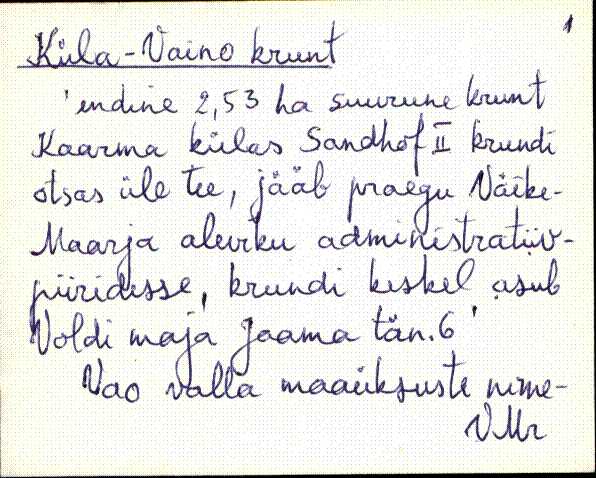 1
Küla-Vaino krunt
'endine 2,53 ha suurune krunt
Kaarma külas Sandhof II krundi
otsas üle tee, jääb praegu Väike-
Maarja aleviku administratiiv-
piiridesse, krundi keskel asub
Voldi maja Jaama tän. 6'
Vao valla maaüksuste nime-
VMr